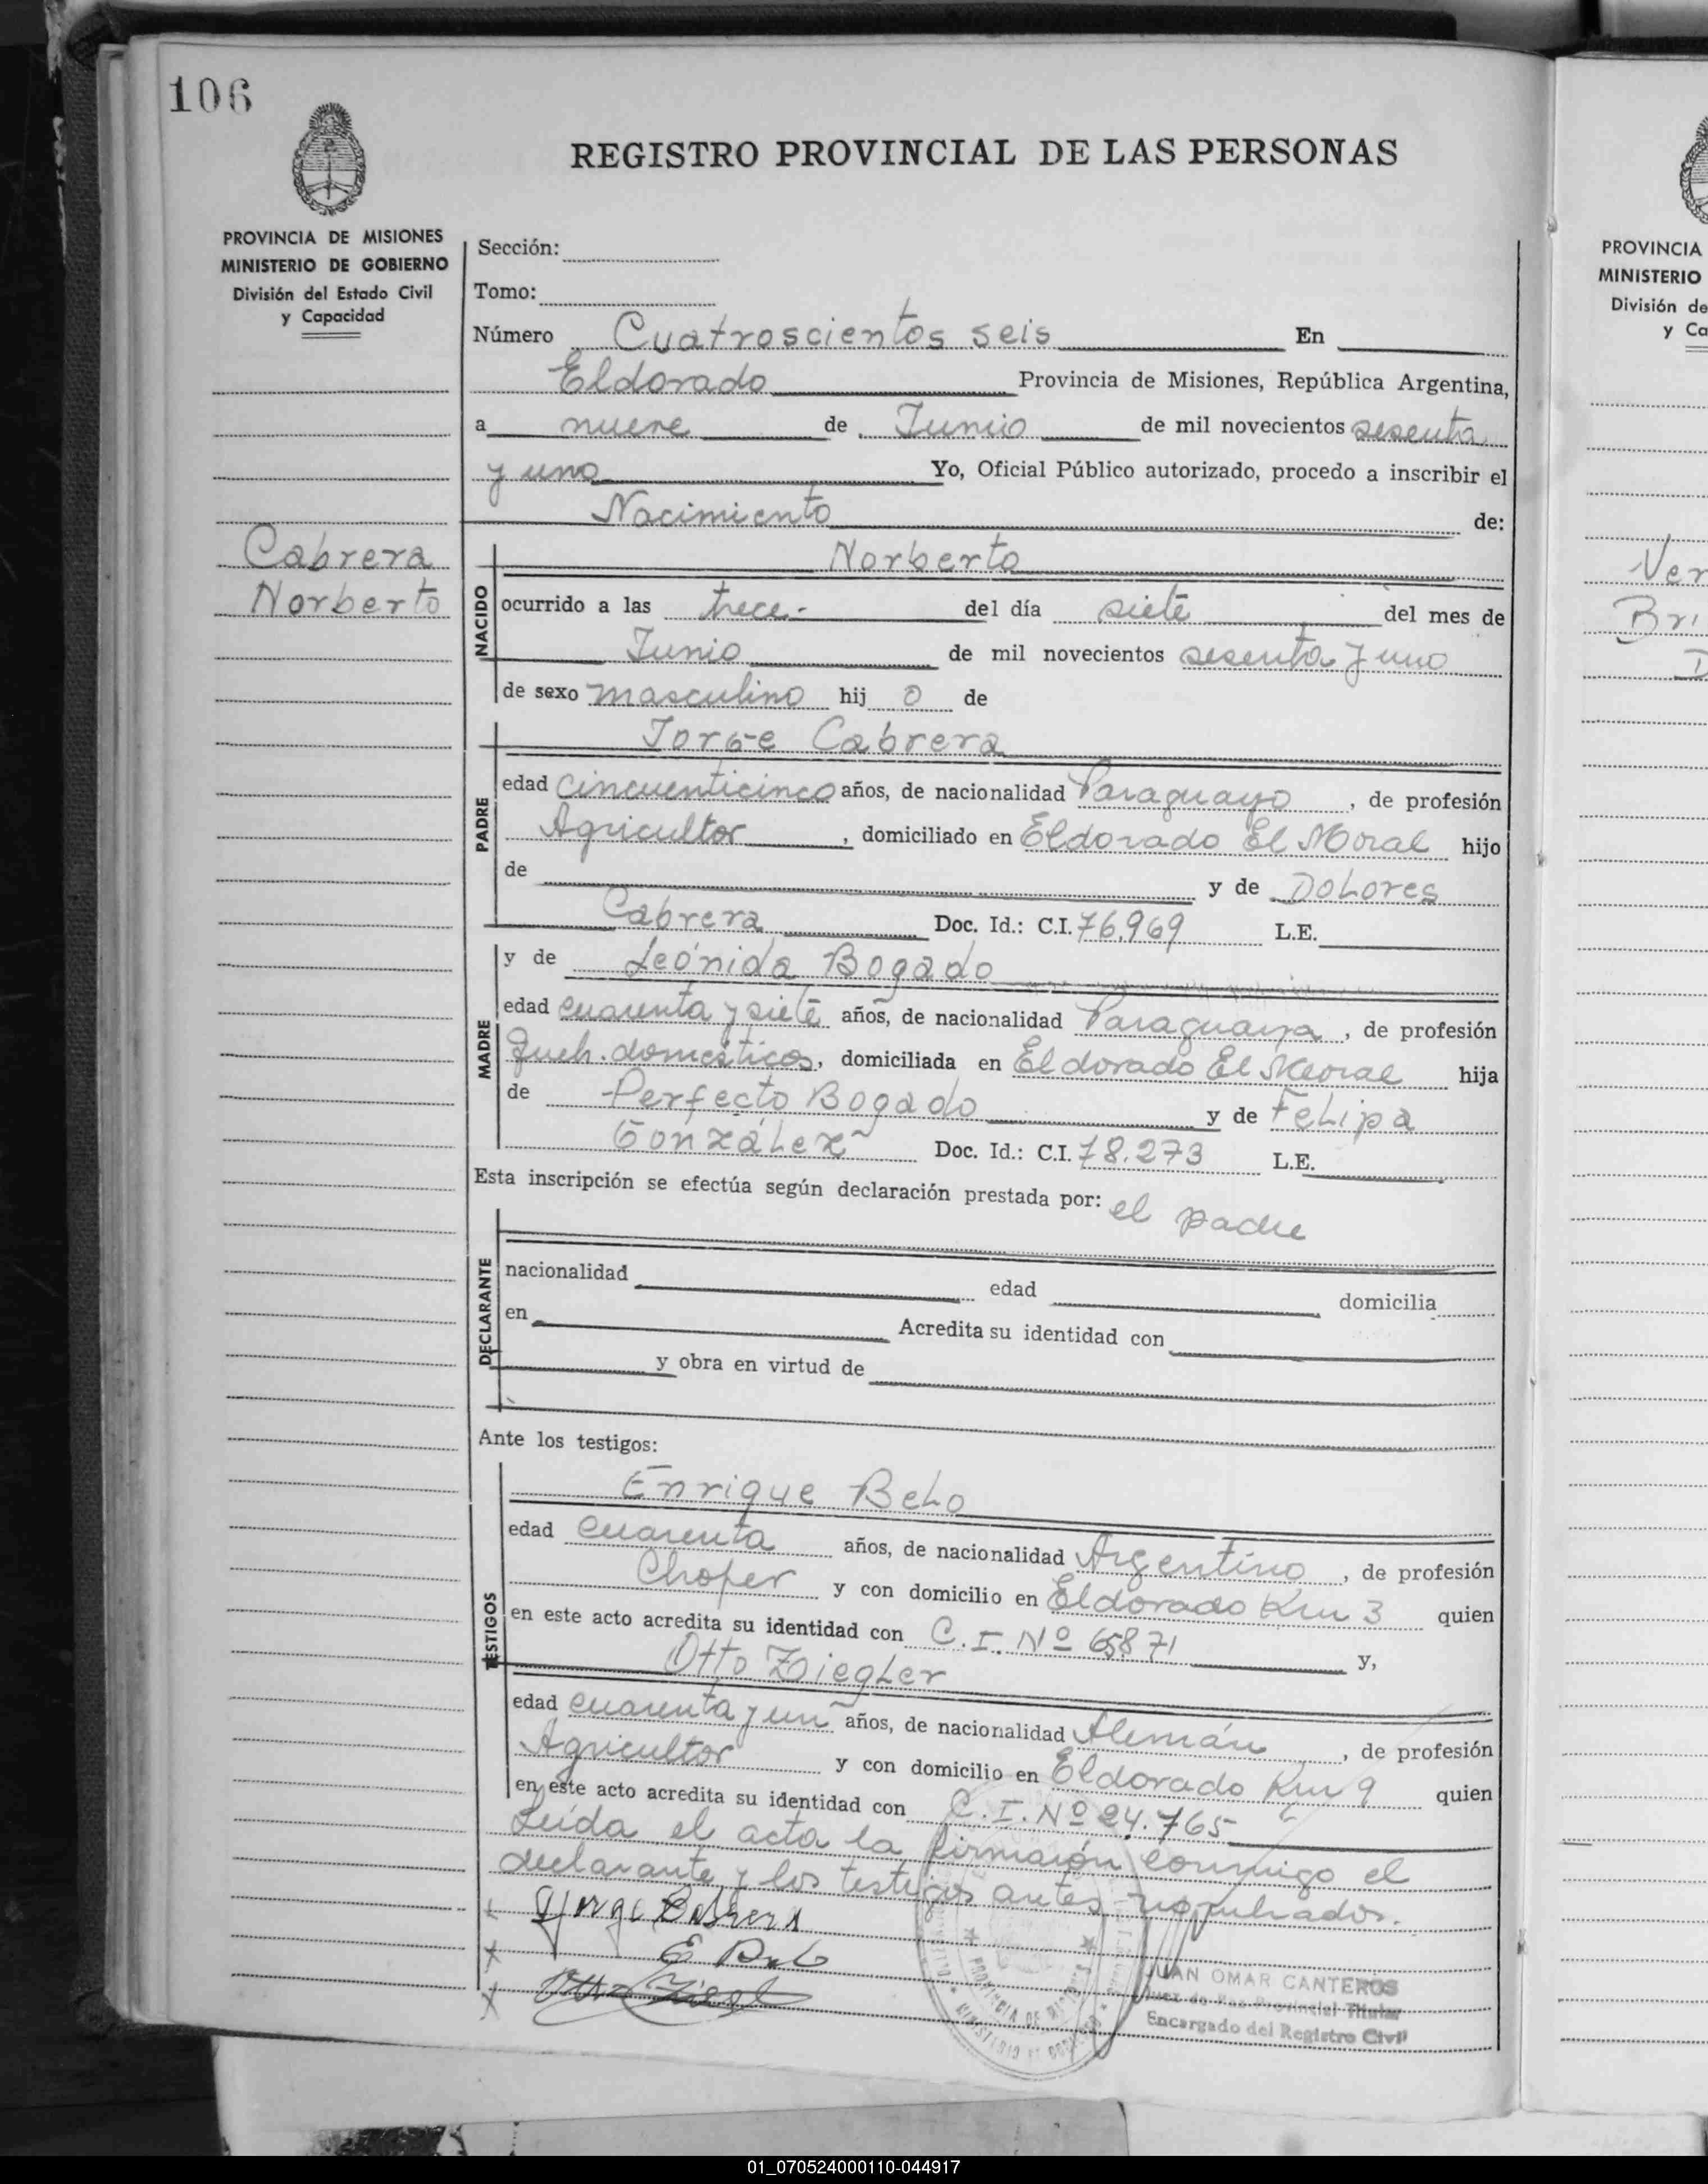 106
REGISTRO PROVINCIAL DE LAS PERSONAS
PROVINCIA DE MISIONES
MINISTERIO DE GOBIERNO
División del Estado Civil
y Capacidad
Cabrera
Norberto
Sección:
Tomo:
Número Cuatroscientos seis En
Eldorado Provincia de Misiones, República Argentina,
a nueve de Junio de mil novecientos sesenta
y uno Yo, Oficial Público autorizado, procedo a inscribir el
Nacimiento de:
NACIDO
Norberto
ocurrido a las trece.- del día siete del mes de
Junio de mil novecientos sesenta y uno
de sexo masculino hij o de
PADRE
Jorge Cabrera
edad cincuenticinco años, de nacionalidad Paraguayo, de profesión
Agricultor, domiciliado en Eldorado El Moral hijo
de y de Dolores
Cabrera Doc. Id.: C.I. 76.969 L.E.
MADRE
y de Leónida Bogado
edad cuarenta y siete años, de nacionalidad Paraguaya, de profesión
Queh. domésticos, domiciliada en Eldorado El Moral hija
de Perfecto Bogado y de Felipa
González Doc. Id.: C.I. 78.273 L.E.
Esta inscripción se efectúa según declaración prestada por: el padre
DECLARANTE
nacionalidad edad domicilia
en Acredita su identidad con
y obra en virtud de
Ante los testigos:
TESTIGOS
Enrique Belo
edad cuarenta años, de nacionalidad Argentino, de profesión
Chofer y con domicilio en Eldorado Km 3 quien
en este acto acredita su identidad con C.I. Nº 65871 y,
Otto Ziegler
edad cuarenta y un años, de nacionalidad Alemán, de profesión
Agricultor y con domicilio en Eldorado Km 9 quien
en este acto acredita su identidad con C.I. Nº 24.765
Leída el acta la firmarón conmigo el
declarante y los testigos antes
Jorge Cabrera
JUAN OMAR CANTEROS
Juez de Paz Provincial Titular
Encargado del Registro Civil
PROVINCIA
MINISTERIO
División de
y Ca
Ver
Bri
01_070524000110-044917